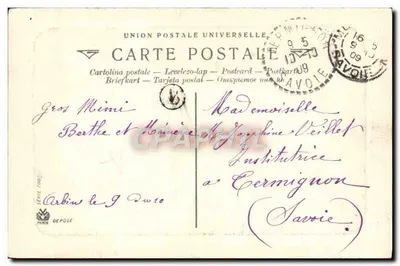 UNION POSTALE UNIVERSELLE
CARTE POSTALE
Cartolina postale — Levelezo-lap — Postcard — Postkarte
Briefkart — Tarjeta postal —
Gros Mimi
Berthe et
Arbin le 9
Mademoiselle
Joséphine Veillet
Institutrice
à Termignon
(Savoie)
9 5
10
09
SAVOIE
16 5
9
09
SAVOIE
DÉPOSÉ